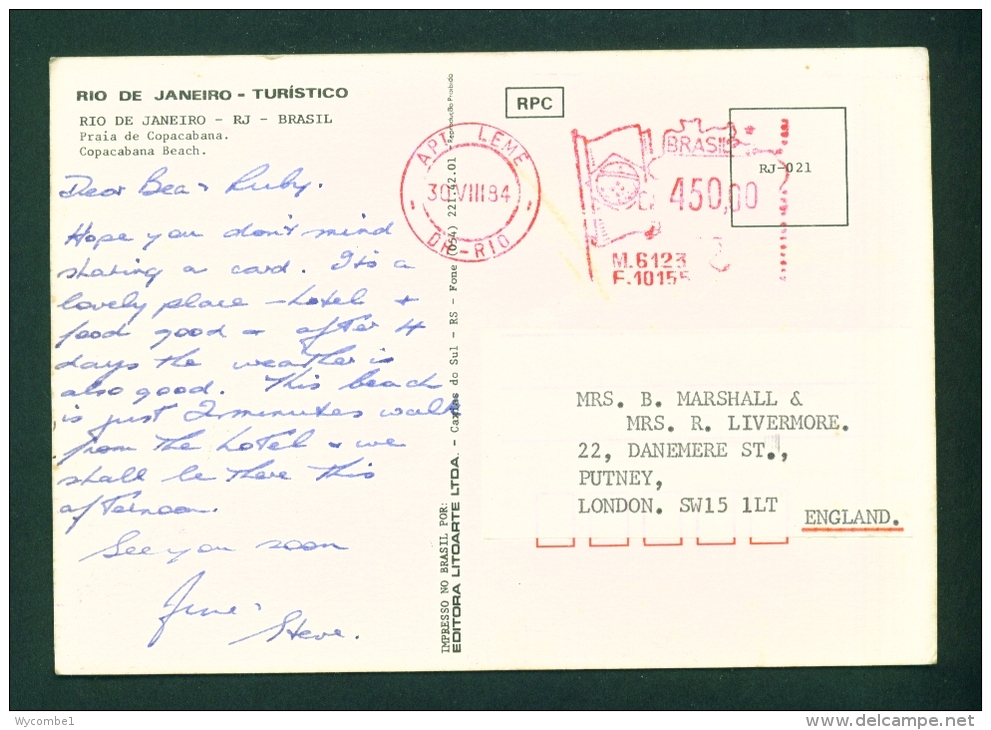 RIO DE JANEIRO - TURÍSTICO
RIO DE JANEIRO - RJ - BRASIL
Praia de Copacabana.
Copacabana Beach.
Dear Bea & Ruby.
Hope you don't mind
sharing a card. It's a
lovely place - hotel +
food good - after 4
days the weather is
also good. This beach
is just 2 minutes walk
from the hotel & we
shall be there this
afternoon.
See you soon
June &
Steve.
IMPRESSO NO BRASIL POR:
EDITORA LITOARTE LTDA. - Caxias do Sul - RS - Fone (054) 221.42.01
Reprodução Proibida
RPC
API LEME
30 VIII 84
DR-RIO
BRASIL
450,00
M.6123
F.10155
RJ-021
MRS. B. MARSHALL &
MRS. R. LIVERMORE.
22, DANEMERE ST.,
PUTNEY,
LONDON. SW15 1LT
ENGLAND.
Wycombe1
delcampe.net